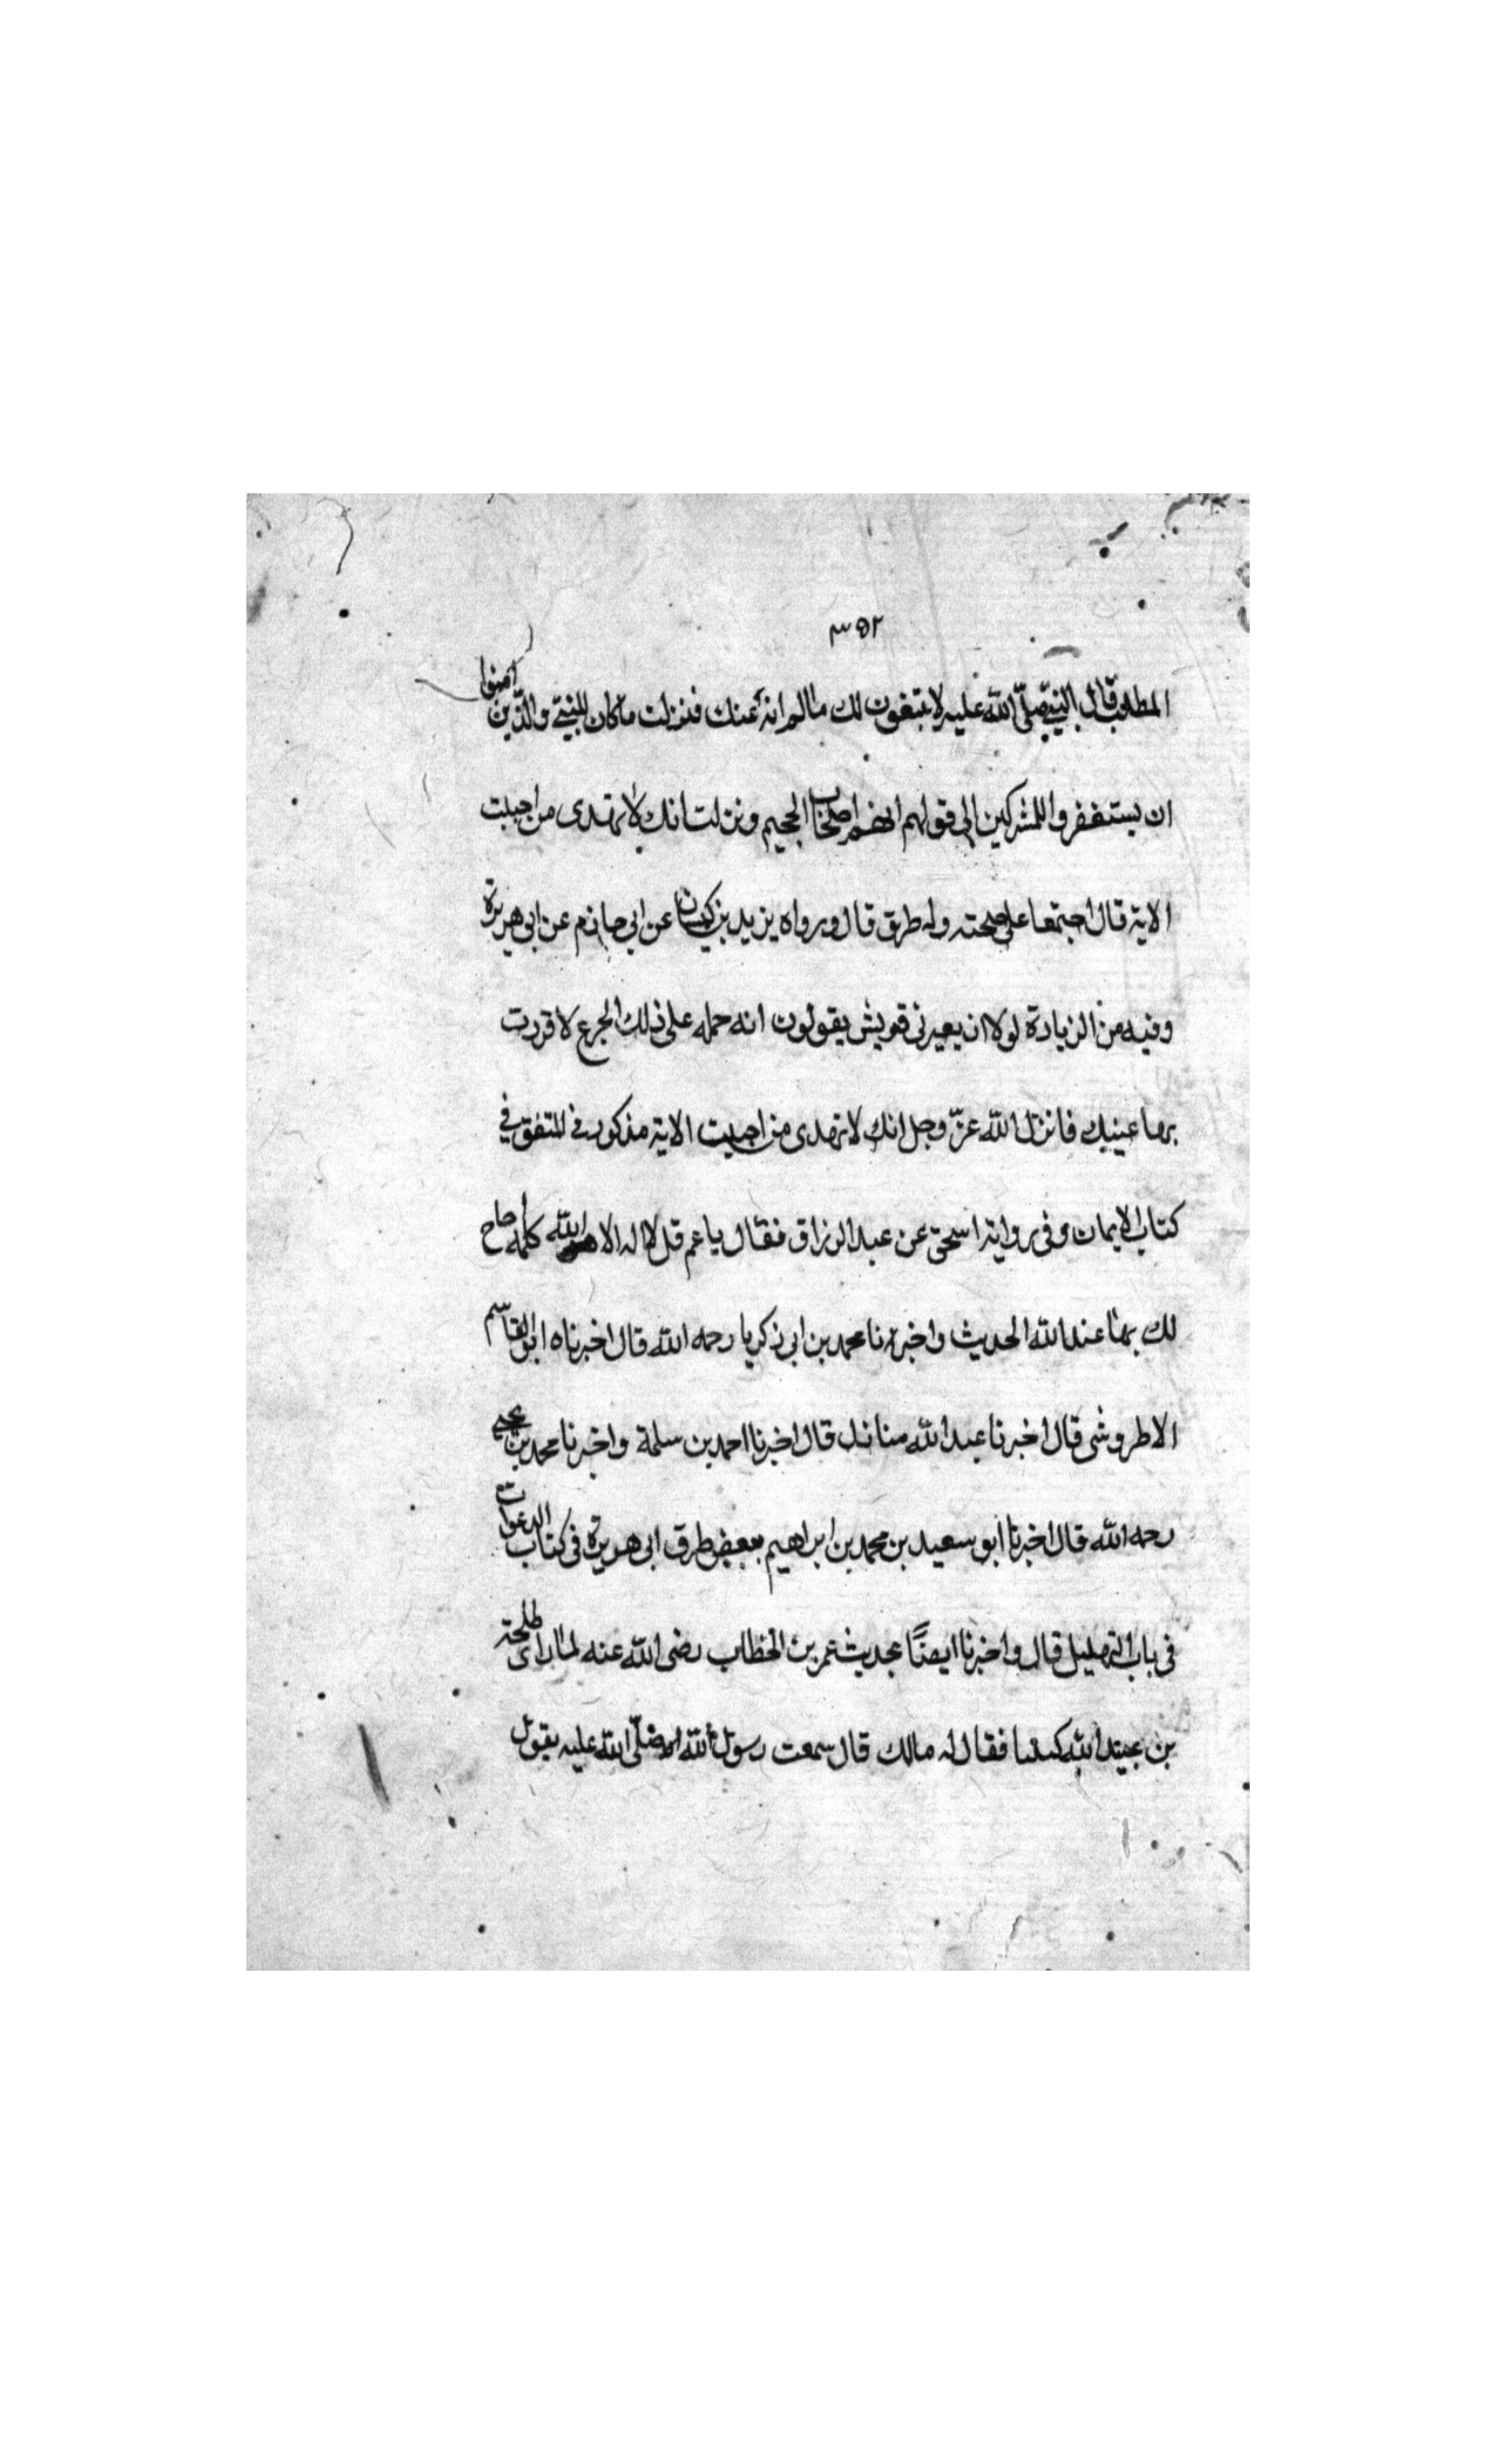 ٣٥٢
المطلب قال النبي صلى الله عليه لا ستغفرن لك ما لم انه عنك فنزلت ما كان للنبي والذين امنوا
ان يستغفروا للمشركين الى قولهم انهم اصحاب الجحيم ونزلت انك لا تهدى من احببت
الاية قال اجتمعا على صحته وله طرق قال ورواه يزيد بن كيسان عن ابي حازم عن ابي هريرة
وفيه من الزيادة لولا ان يعيرنى قريش يقولون انه حمله على ذلك الجزع لاقررت
بها عينيك فانزل الله عزّ وجل انك لا تهدى من احببت الاية مذكور فى المتفق في
كتاب الايمان وفى رواية اسحق عن عبد الرزاق فقال يا عم قل لا اله الا الله كلمة احاج
لك بها عند الله الحديث واخبرنا محمد بن ابى زكريا رحمه الله قال اخبرناه ابو القاسم
الاطروشى قال اخبرنا عبد الله منازل قال اخبرنا احمد بن سلمة واخبرنا محمد بن يحيى
رحمه الله قال اخبرنا ابو سعيد بن محمد بن ابراهيم ببعض طرق ابى هريرة فى كتاب الدعوات
فى باب التهليل قال واخبرنا ايضًا بحديث عمر بن الخطاب رضى الله عنه لما راى طلحة
بن عبيد الله فقال له مالك قال سمعت رسول الله صلّى الله عليه يقول